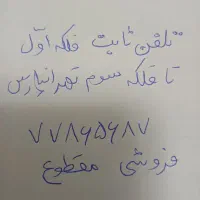 تلفن ثابت فلکه اوّل
تا فلکه سوم تهرانپارس
۷۷۸۶۵۶۸۷
فروشی مقطوع